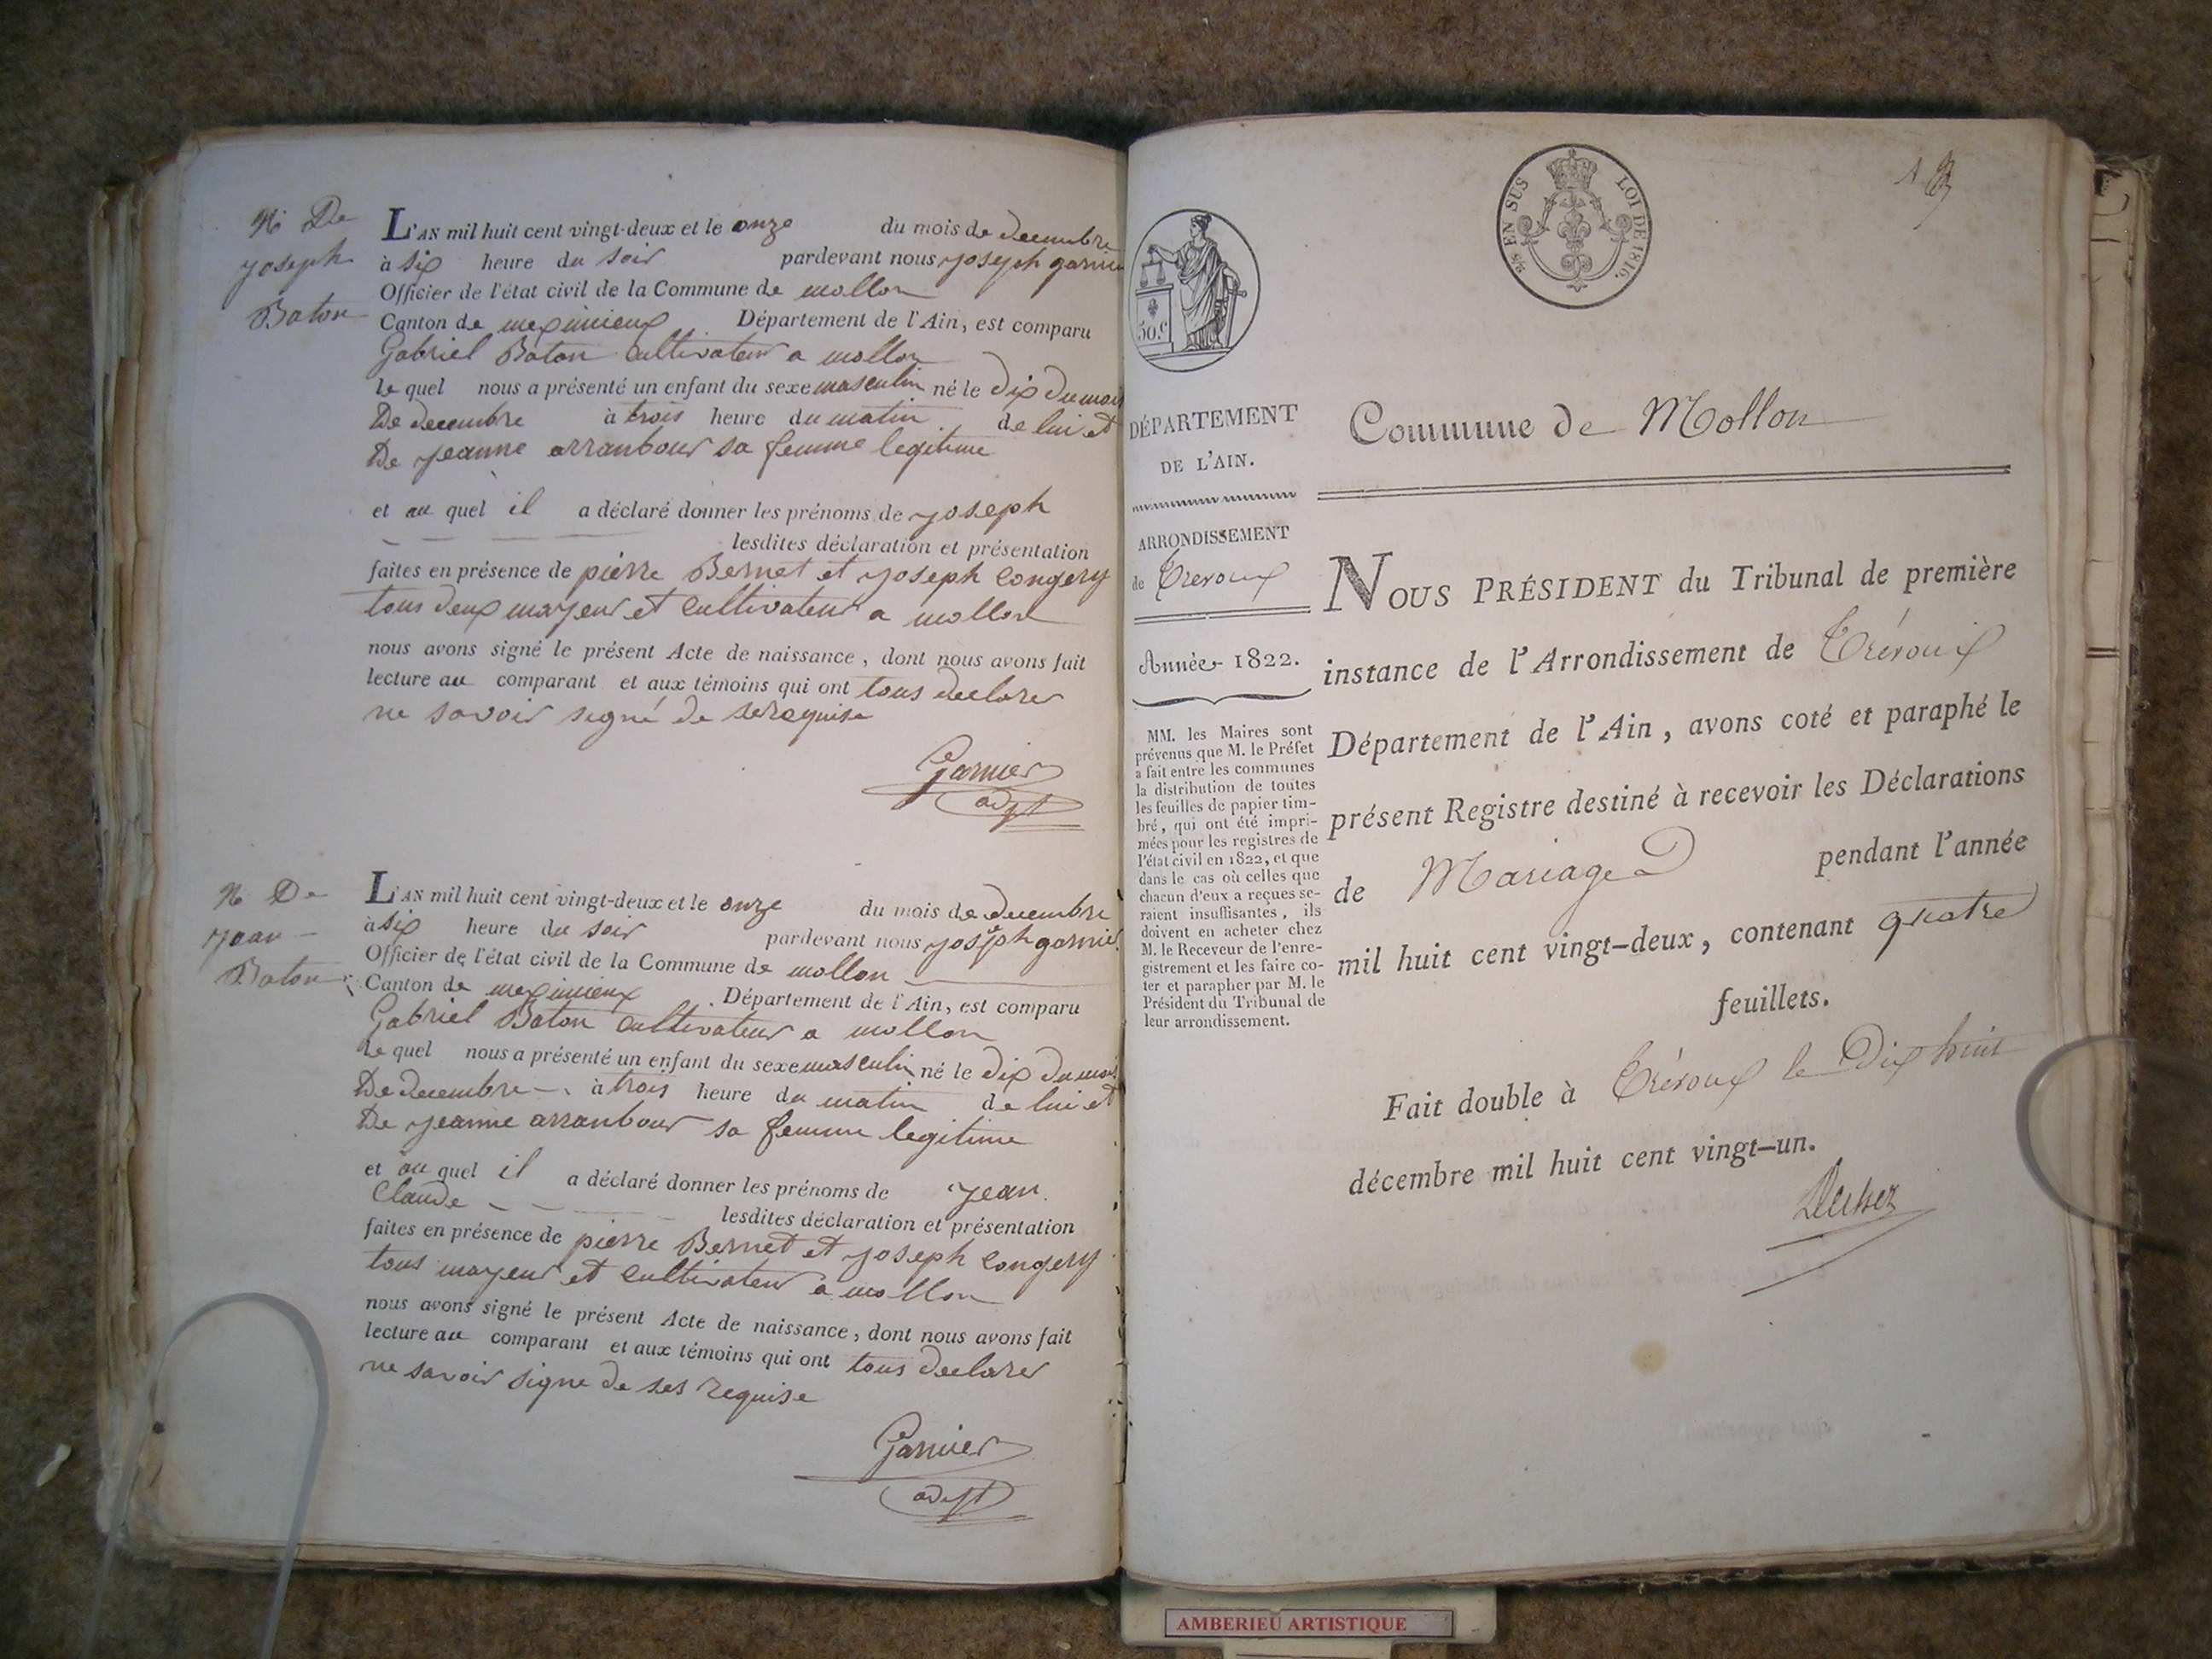 N. De
Joseph
Baton
L'AN mil huit cent vingt-deux et le onze du mois de decembre
à six heure du soir pardevant nous joseph garnier
Officier de l'état civil de la Commune de mollon
Canton de meximieux Département de l'Ain, est comparu
Gabriel Baton cultivateur a mollon
le quel nous a présenté un enfant du sexe masculin né le dix du mois
De decembre à trois heure du matin de lui et
De jeanne arranbour sa femme legitime
et au quel il a déclaré donner les prénoms de joseph
lesdites déclaration et présentation
faites en présence de pierre Bernet et joseph congery
tous deux mayeur et cultivateur a mollon
nous avons signé le présent Acte de naissance, dont nous avons fait
lecture au comparant et aux témoins qui ont tous declarer
ne savoir signé de
Garnier
adjt
N. De
jean
Baton
L'AN mil huit cent vingt-deux et le onze du mois de decembre
à six heure du soir pardevant nous joseph garnier
Officier de l'état civil de la Commune de mollon
Canton de meximieux Département de l'Ain, est comparu
Gabriel Baton cultivateur a mollon
le quel nous a présenté un enfant du sexe masculin né le dix du mois
De decembre à trois heure du matin de lui et
De jeanne arranbour sa femme legitime
et au quel il a déclaré donner les prénoms de jean
Claude
lesdites déclaration et présentation
faites en présence de pierre Bernet et joseph congery
tous mayeur et cultivateur a mollon
nous avons signé le présent Acte de naissance, dont nous avons fait
lecture au comparant et aux témoins qui ont tous declarer
ne savoir signe de ses requise
Garnier
adjt
EN SUS LOI DE 1816.
50.c
DÉPARTEMENT
DE L'AIN.
ARRONDISSEMENT
de Trevoux
Année 1822.
MM. les Maires sont
prévenus que M. le Préfet
a fait entre les communes
la distribution de toutes
les feuilles de papier tim-
bré, qui ont été impri-
mées pour les registres de
l'état civil en 1822, et que
dans le cas où celles que
chacun d'eux a reçues se-
raient insuffisantes, ils
doivent en acheter chez
M. le Receveur de l'enre-
gistrement et les faire co-
ter et parapher par M. le
Président du Tribunal de
leur arrondissement.
Commune de Mollon
NOUS PRÉSIDENT du Tribunal de première
instance de l'Arrondissement de Trévoux
Département de l'Ain, avons coté et paraphé le
présent Registre destiné à recevoir les Déclarations
de Mariage pendant l'année
mil huit cent vingt-deux, contenant quatre
feuillets.
Fait double à Trévoux le Dix huit
décembre mil huit cent vingt-un.
AMBERIEU ARTISTIQUE